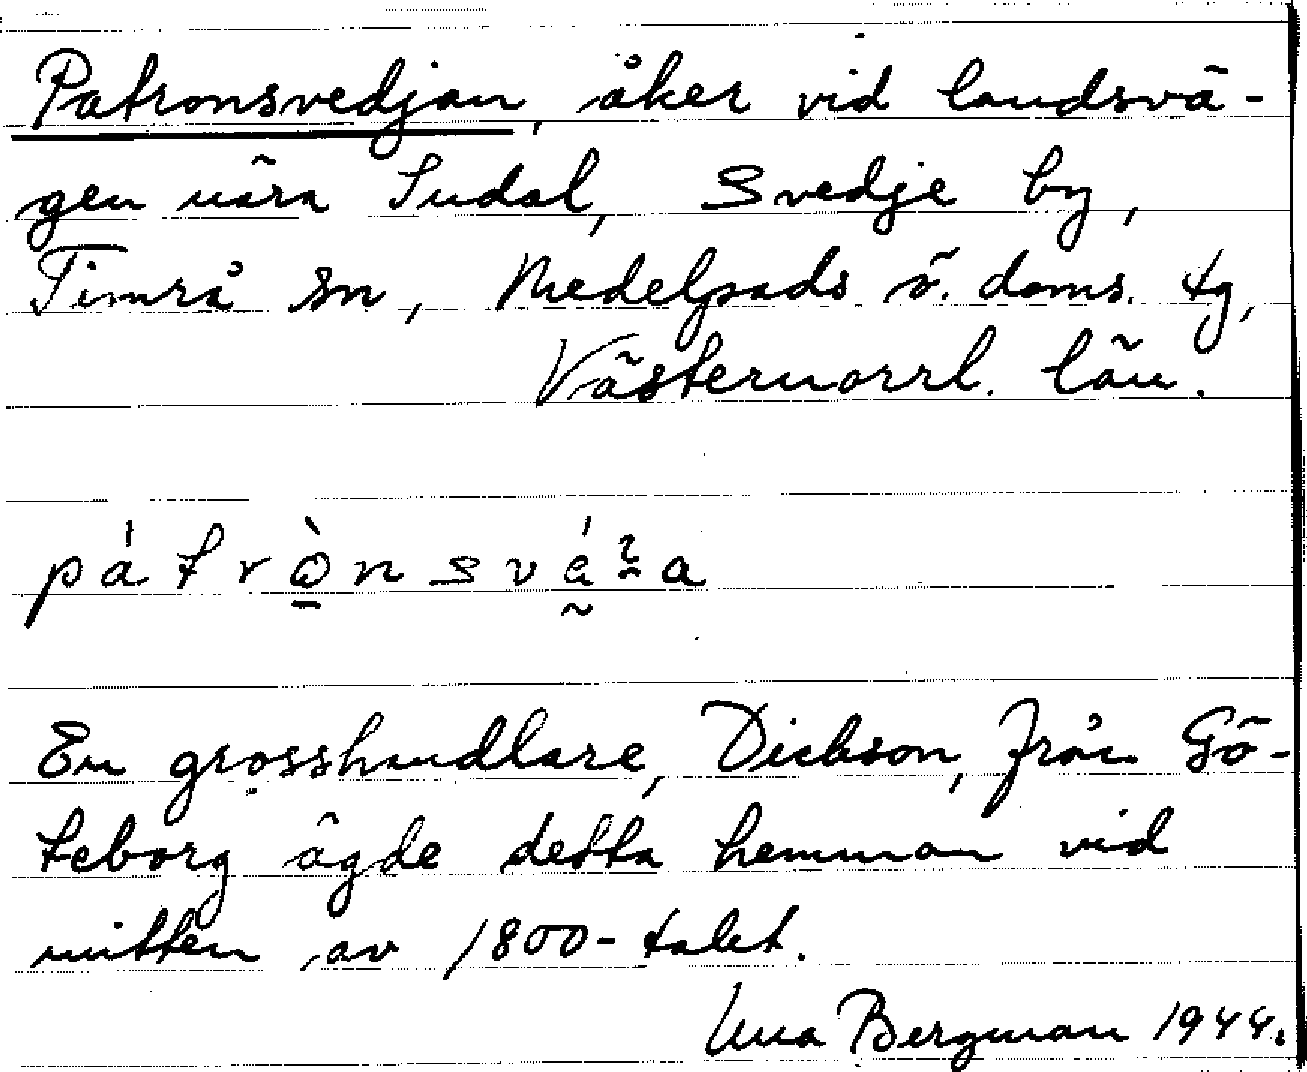 Patronsvedjan, åker vid landsvä-
gen nära Sudal, Svedje by,
Timrå sn, Medelpads ö. doms. tg,
Västernorrl. län.
En grosshandlare, Dickson, från Gö-
teborg ägde detta hemman vid
mitten av 1800-talet.
Bergman 1944.